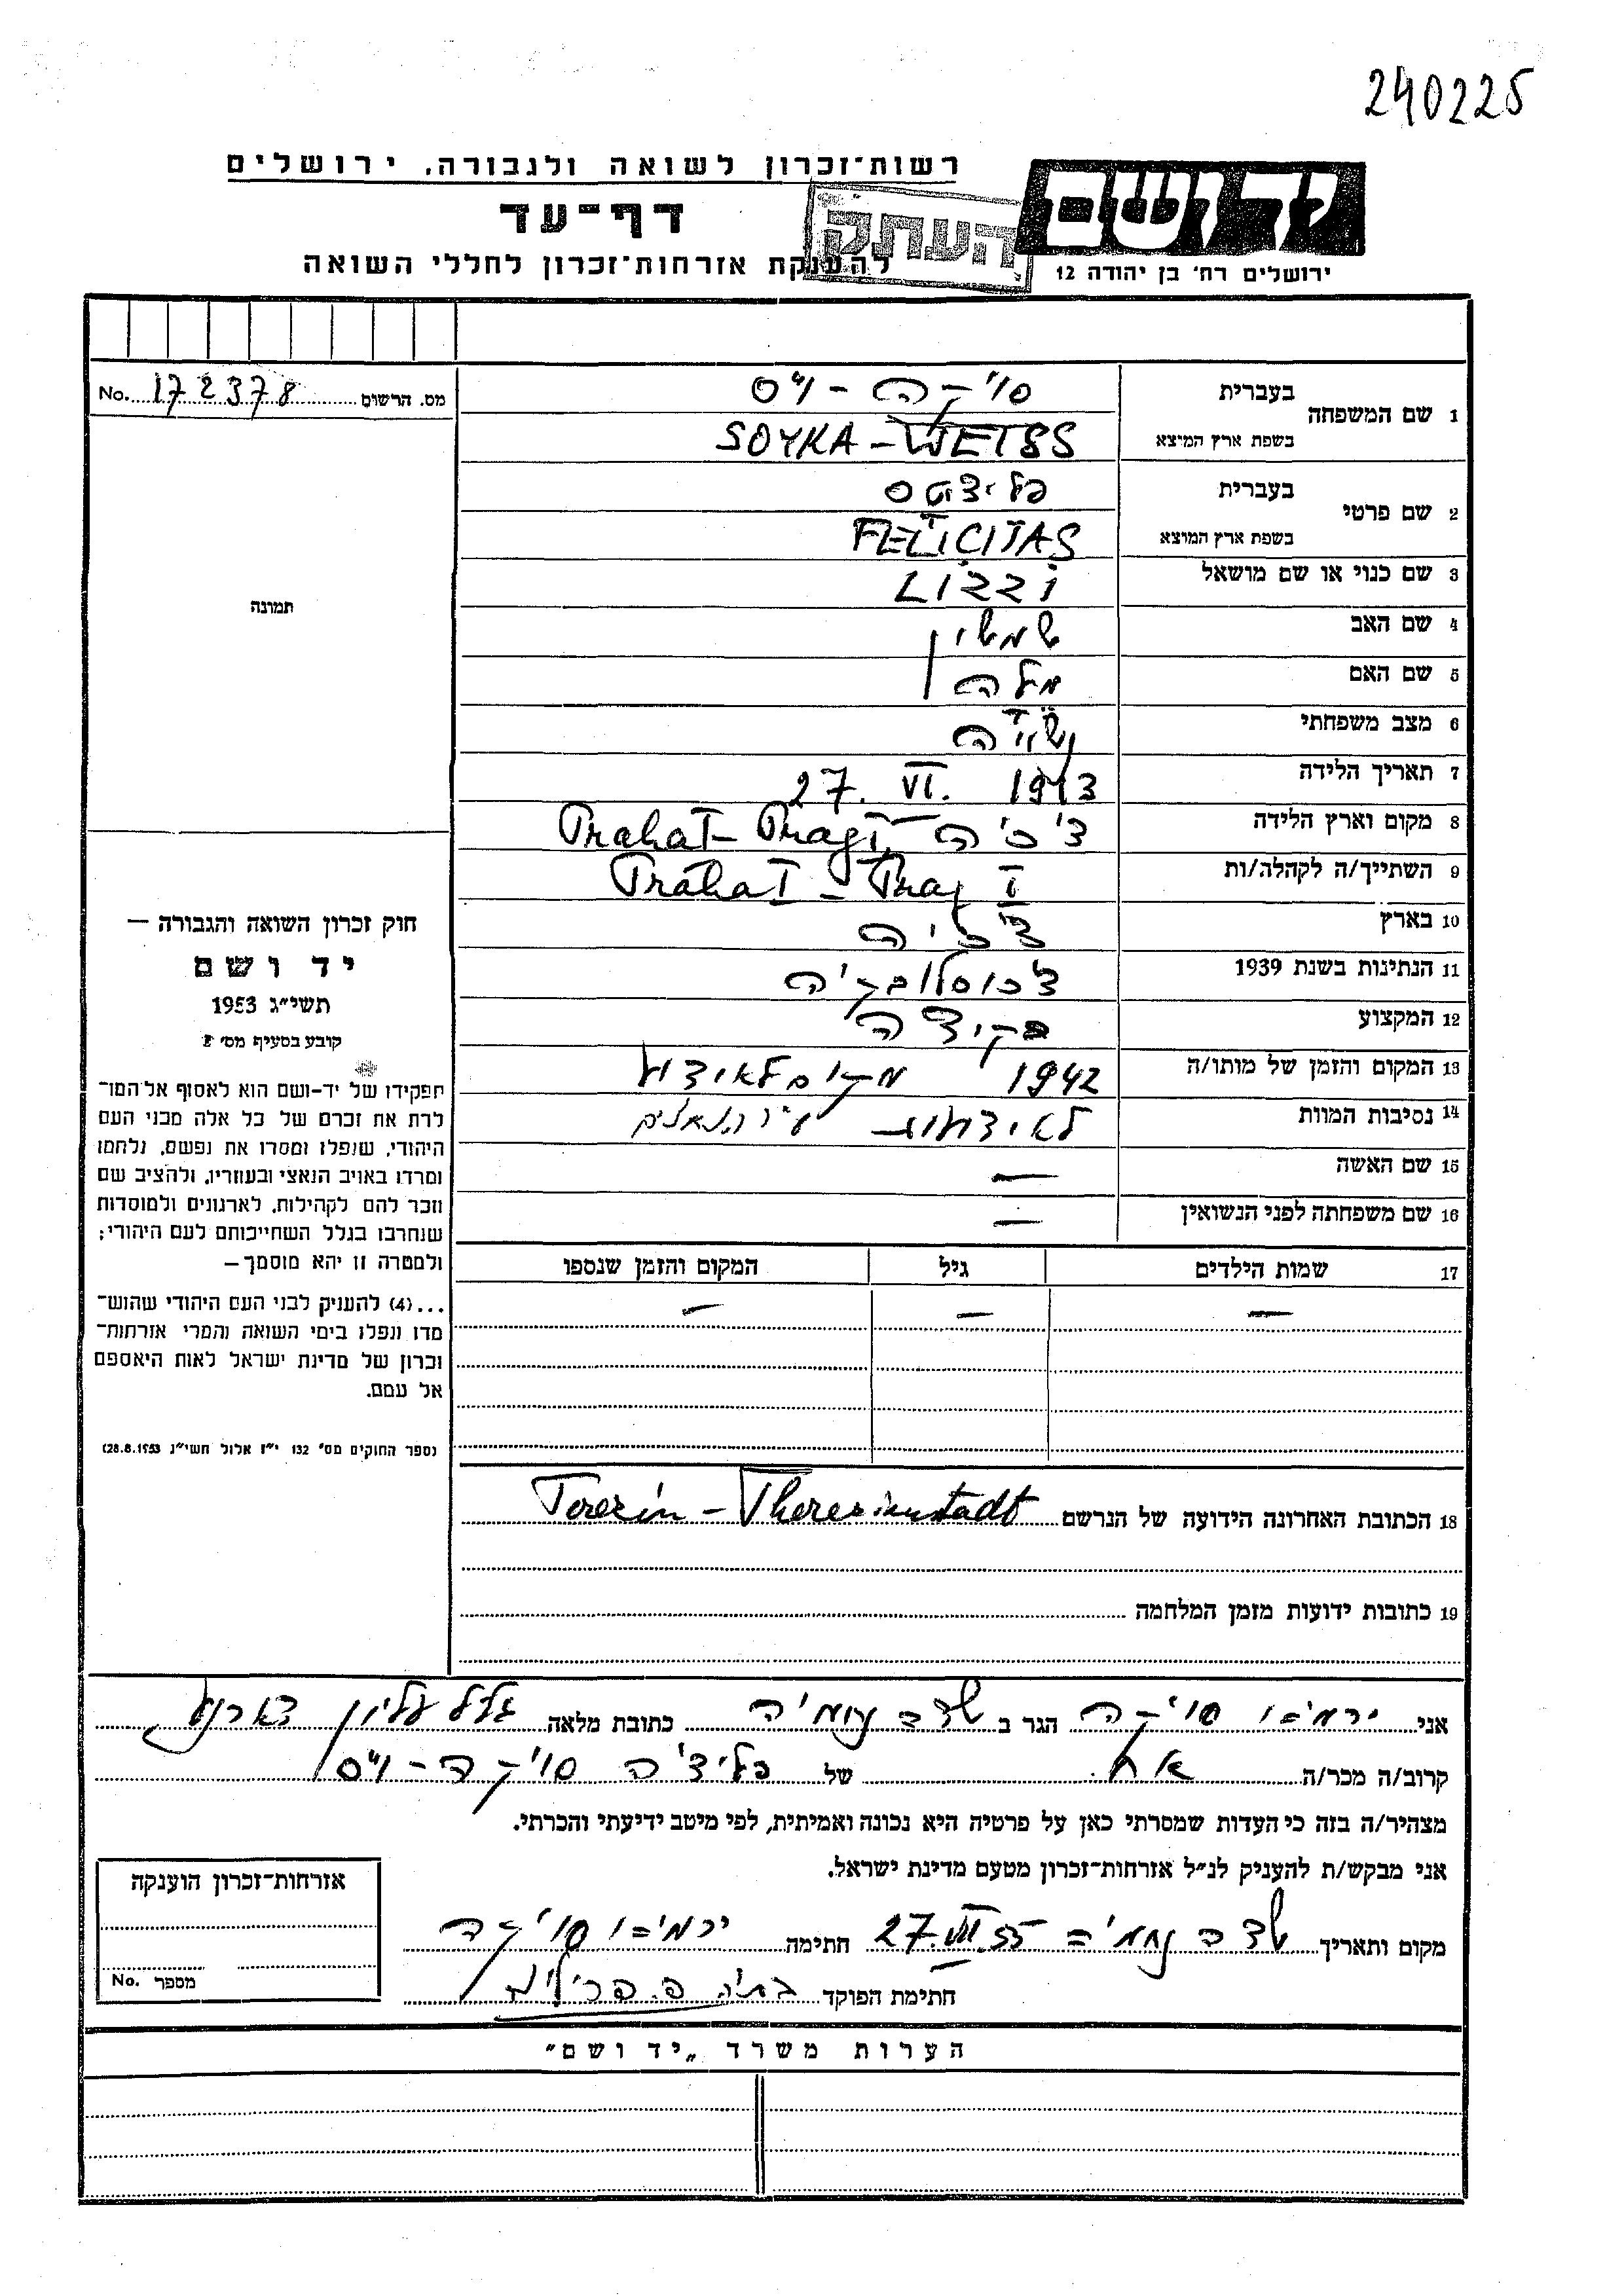 240225
רשות־זכרון לשואה ולגבורה, ירושלים
יד ושם
דף־עד
העתק
להענקת אזרחות־זכרון לחללי השואה
ירושלים רח׳ בן יהודה 12
מס. הרשום 172378 No.
1 שם המשפחה בעברית סויקה - וייס
בשפת ארץ המוצא SOYKA - WEISS
2 שם פרטי בעברית פליציטס
בשפת ארץ המוצא FELICITAS
3 שם כנוי או שם מושאל LIZZI
4 שם האב
5 שם האם
6 מצב משפחתי נשואה
7 תאריך הלידה 27. VI. 1913
8 מקום וארץ הלידה צ׳כיה Praha I - Prag I
9 השתייך/ה לקהלה/ות Praha I - Prag I
10 בארץ צ׳כיה
11 הנתינות בשנת 1939 צ׳כוסלובקיה
12 המקצוע פקידה
13 המקום והזמן של מותו/ה 1942 מקום לא ידוע
14 נסיבות המוות לא ידועות
15 שם האשה —
16 שם משפחתה לפני הנשואין —
17 שמות הילדים גיל המקום והזמן שנספו
— — —
תמונה
חוק זכרון השואה והגבורה —
יד ושם
תשי״ג 1953
קובע בסעיף מס׳ 2
תפקידו של יד-ושם הוא לאסוף אל המו־
לדת את זכרם של כל אלה מבני העם
היהודי, שנפלו ומסרו את נפשם, נלחמו
ומרדו באויב הנאצי ובעוזריו, ולהציב שם
וזכר להם לקהילות, לארגונים ולמוסדות
שנחרבו בגלל השתייכותם לעם היהודי;
ולמטרה זו יהא מוסמך —
...(4) להעניק לבני העם היהודי שהוש־
מדו ונפלו בימי השואה והמרי אזרחות־
זכרון של מדינת ישראל לאות היאספם
אל עמם.
(ספר החוקים מס׳ 132 י״ז אלול תשי״ג 28.8.1953)
18 הכתובת האחרונה הידועה של הנרשם Terezín - Theresienstadt
19 כתובות ידועות מזמן המלחמה
אני ירמיהו סויקה הגר ב שדה נחמיה כתובת מלאה גליל עליון
קרוב/ה מכר/ה אח של פליציה סויקה - וייס
מצהיר/ה בזה כי העדות שמסרתי כאן על פרטיה היא נכונה ואמיתית, לפי מיטב ידיעתי והכרתי.
אני מבקש/ת להעניק לנ״ל אזרחות-זכרון מטעם מדינת ישראל.
מקום ותאריך שדה נחמיה 27.VII.55 חתימה ירמיהו סויקה
חתימת הפוקד
אזרחות-זכרון הוענקה
מספר No.
הערות משרד „יד ושם״